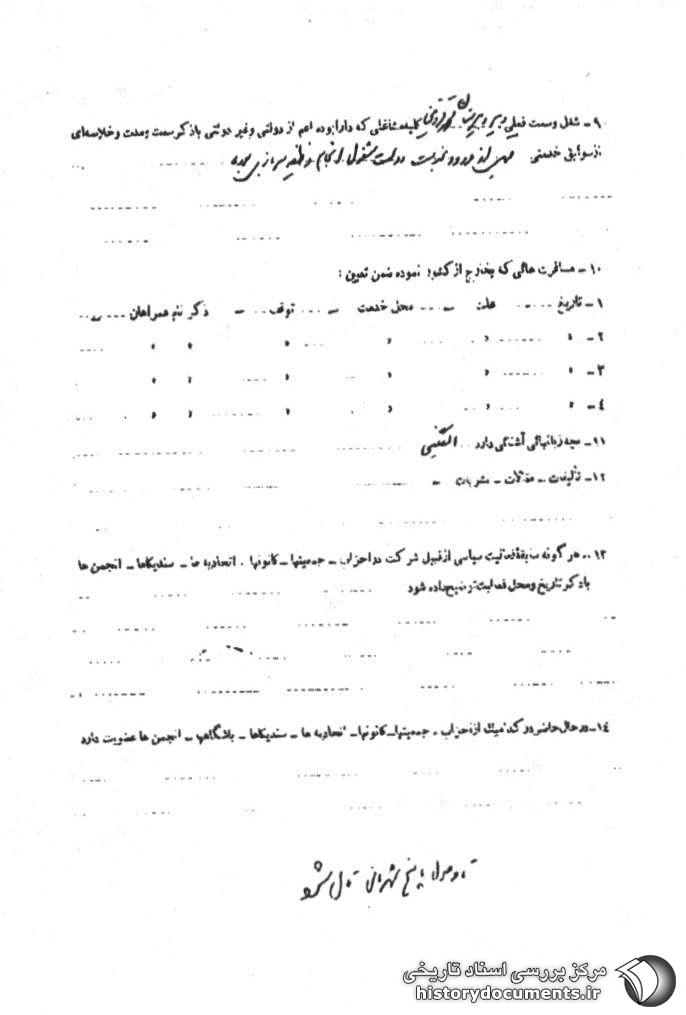 ۹ - شغل و سمت فعلی دبیر دبیرستان کلیه مشاغلی که دارا بوده اعم از دولتی و غیر دولتی با ذکر سمت و مدت و خلاصه‌ای
از سوابق خدمتی. قبل از ورود بخدمت دولت مشغول انجام وظیفه سربازی بوده
۱۰ - مسافرت هائی که بخارج از کشور نموده ضمن تعیین :
۱ - تاریخ .... علت - .... محل خدمت - .... توقف .... - ذکر نام همراهان ....
۲ - » » » » » »
۳ - » » » » » »
۴ - » » » » » »
۱۱ - بچه زبانهائی آشنائی دارد .. انگلیسی
۱۲ - تألیفات - مقالات - نشریات -
۱۳ - هر گونه سابقه فعالیت سیاسی از قبیل شرکت در احزاب - جمعیتها - کانونها . اتحادیه ها - سندیکاها - انجمن ها
با ذکر تاریخ و محل فعالیت توضیح داده شود
۱۴ - در حال حاضر در کدامیک از احزاب . جمعیتها - کانونها - اتحادیه ها - سندیکاها - باشگاهها - انجمن ها عضویت دارد
تا وصول پاسخ شهربانی
مرکز بررسی اسناد تاریخی
historydocuments.ir